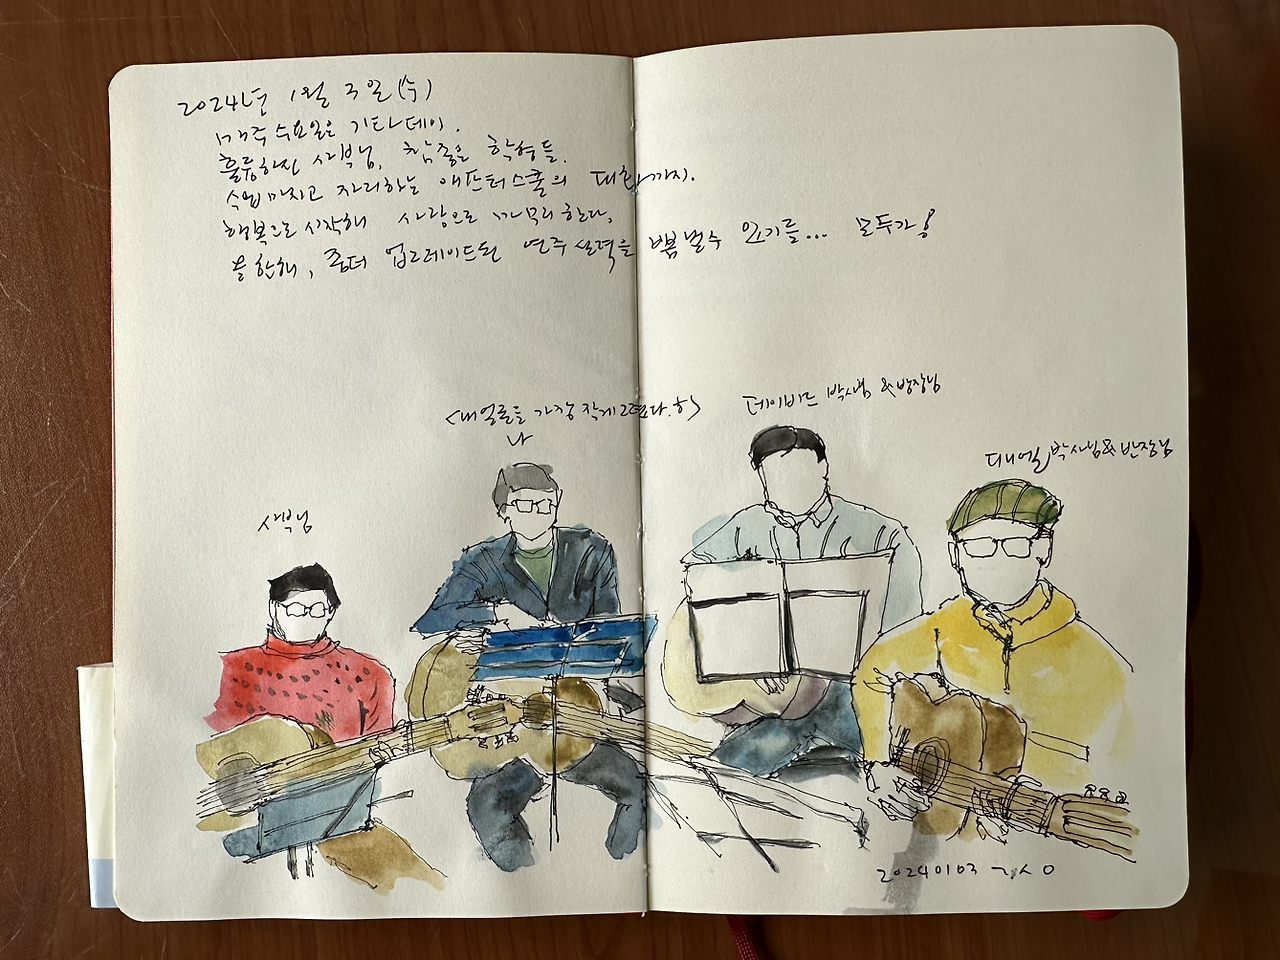 2024년 1월 3일(수)
매주 수요일은 기타데이.
훌륭하신 사부님, 참좋은 학형들.
수업 마치고 자리하는 애프터스쿨의 대화까지.
행복으로 시작해 사랑으로 마무리한다.
올 한해, 좀더 업그레이드된 연주실력을 뽐낼수 있기를... 모두가!
<내얼굴을 가장 작게 그렸다.ㅎ>
나
데이비드 박사님 & 방장님
대니얼 박사님 & 반장님
사부님
20240103 ㄱㅅㅇ